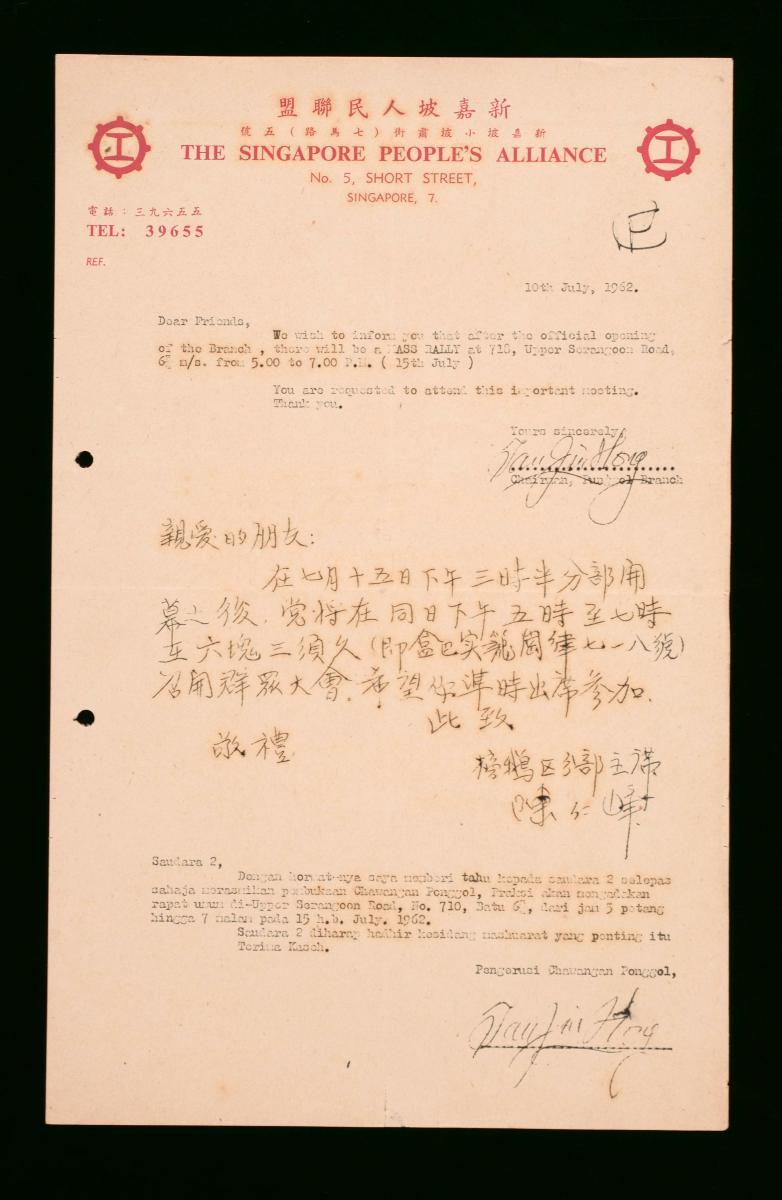 盟聯民人坡嘉新
號五（路馬七）街肅坡小坡嘉新
THE SINGAPORE PEOPLE'S ALLIANCE
No. 5, SHORT STREET,
SINGAPORE, 7.
電話：三九六五五
TEL: 39655
REF.
10th July, 1962.
Dear Friends,
We wish to inform you that after the official opening
of the Branch , there will be a MASS RALLY at 718, Upper Serangoon Road,
m/s. from 5.00 to 7.00 P.M. ( 15th July )
You are requested to attend this important meeting.
Thank you.
Yours sincerely,
Tan Jin Hong
Chairman, Punggol Branch
親爱的朋友：
在七月十五日下午三時半分部開
幕之後，党将在同日下午五時至七時
在六塊三須久（即盒巴实籠崗律七一八號）
召開群眾大會，希望你準時出席參加.
此致
敬禮
榜鵝区分部主席
陳仁
Saudara 2,
Dengan hormat-nya saya memberi tahu kepada saudara 2 selepas
sahaja merasmikan pembukaan Chawangan Ponggol, Fraksi akan mengadakan
rapat umum di-Upper Serangoon Road, No. 710, Batu dari jam 5 petang
hingga 7 malam pada 15 h.b. July. 1962.
Saudara 2 diharap hadhir kesidang mashuarat yang penting itu
Terima Kaseh.
Pengerusi Chawangan Ponggol,
Tan Jin Hong